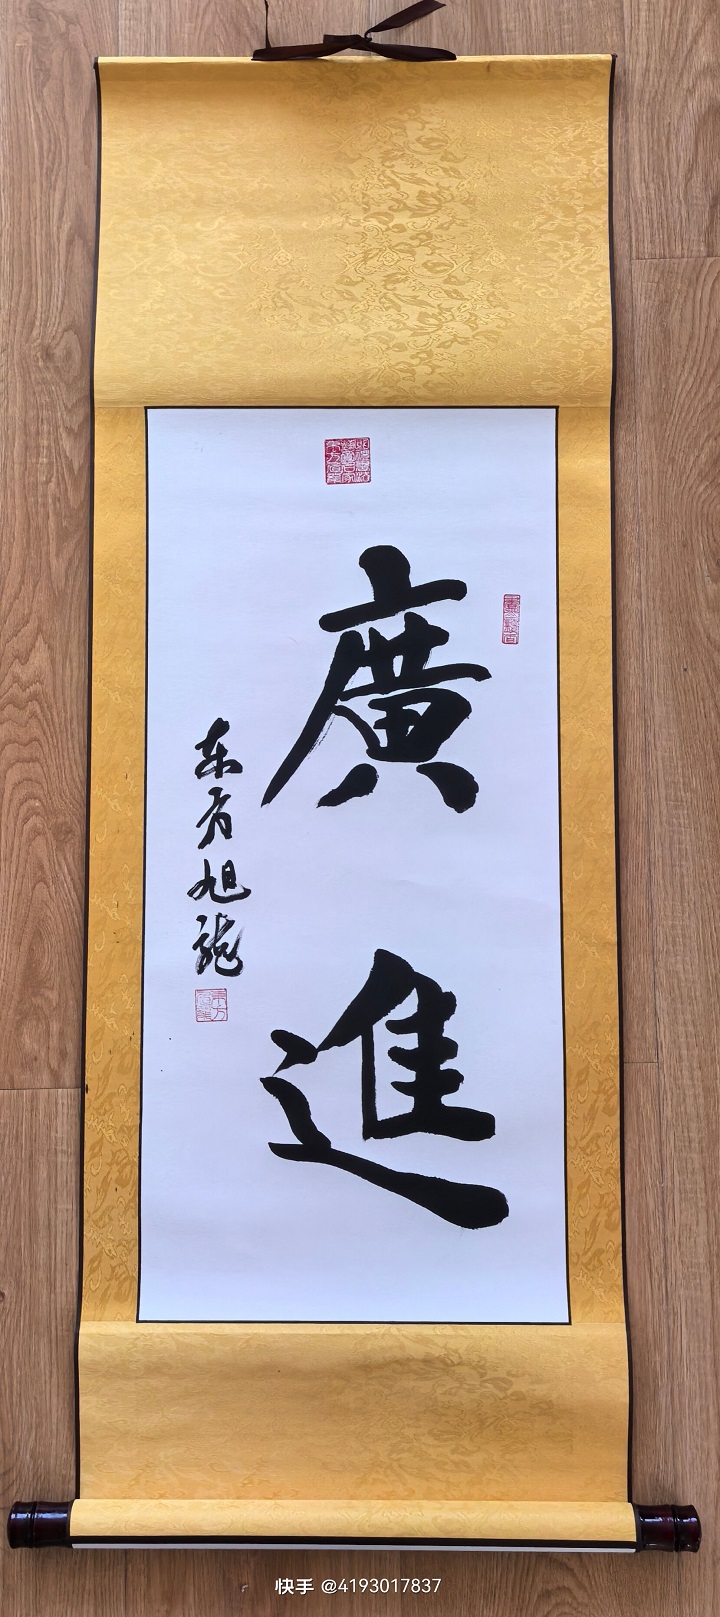 廣進
东方旭龍
快手 @4193017837